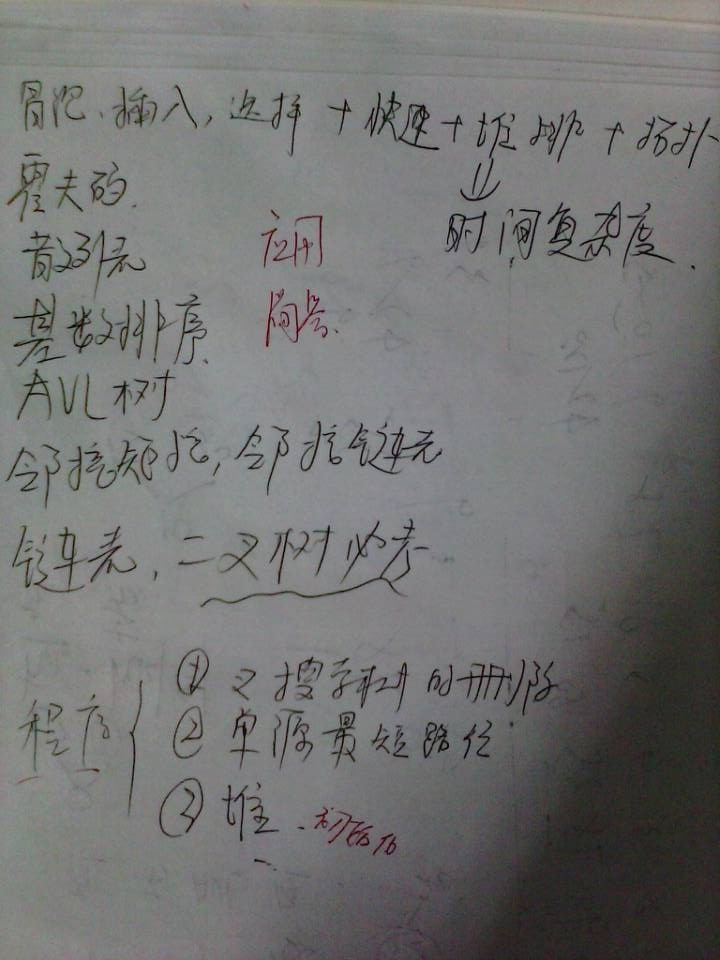 冒泡、插入,选择+快速+堆排+拓扑
⇓
时间复杂度.
霍夫的.
散列表
应用
基数排序.
简答.
AVL树
邻接矩阵,邻接链表
链表,二叉树必考
程序
① 叉搜索树的删除
② 单源最短路径
③ 堆.初始化